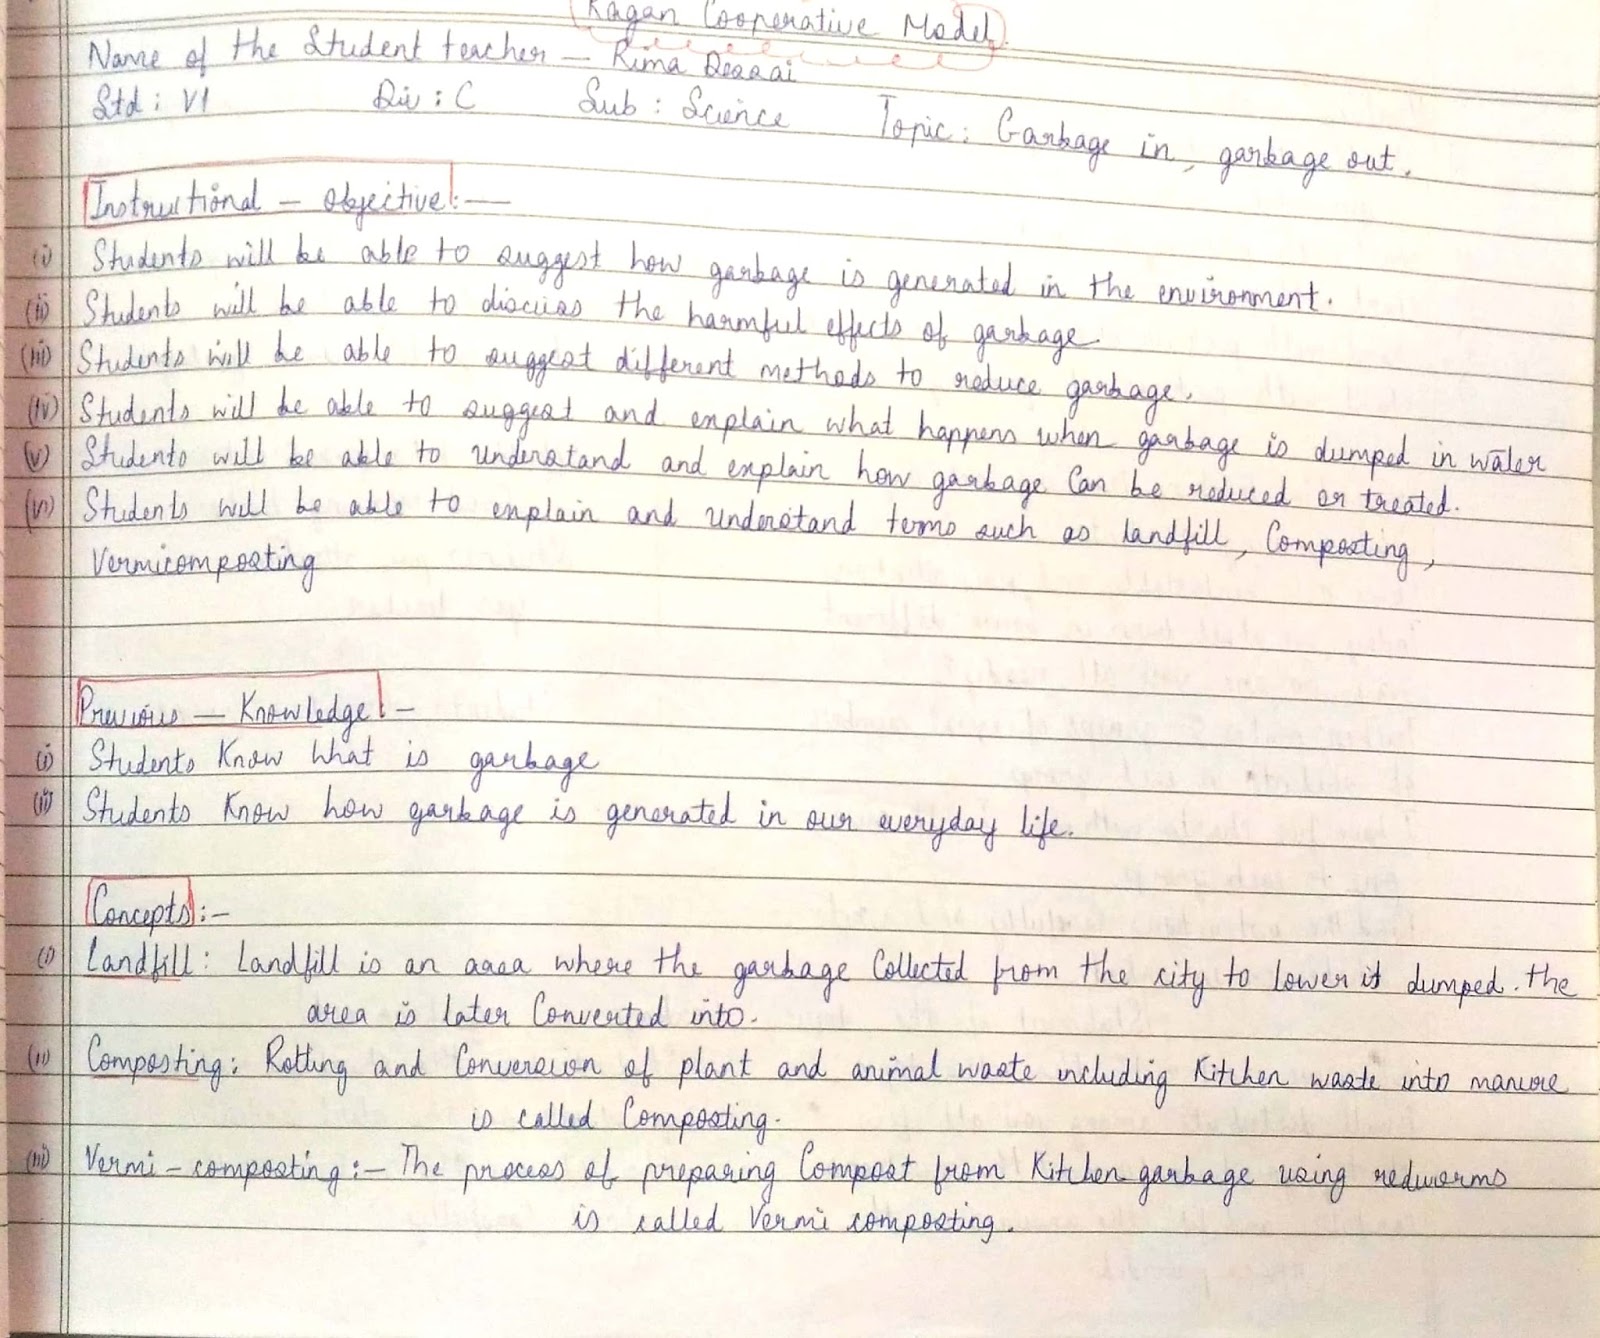 Kagan Cooperative Model
Name of the Student teacher — Rima Dessai
Std : VI Div : C Sub : Science Topic : Garbage in, garbage out.
Instructional — Objective :—
(i) Students will be able to suggest how garbage is generated in the environment.
(ii) Students will be able to discuss the harmful effects of garbage.
(iii) Students will be able to suggest different methods to reduce garbage.
(iv) Students will be able to suggest and explain what happens when garbage is dumped in water
(v) Students will be able to understand and explain how garbage can be reduced or treated.
(vi) Students will be able to explain and understand terms such as landfill, Composting,
Vermicomposting
Previous — Knowledge :-
(i) Students Know what is garbage
(ii) Students Know how garbage is generated in our everyday life.
Concepts :-
(i) Landfill : Landfill is an area where the garbage Collected from the city to lower it dumped. the
area is later Converted into.
(ii) Composting : Rotting and Conversion of plant and animal waste including Kitchen waste into manure
is called Composting.
(iii) Vermi - composting :- The process of preparing Compost from Kitchen garbage using redworms
is called Vermi composting.